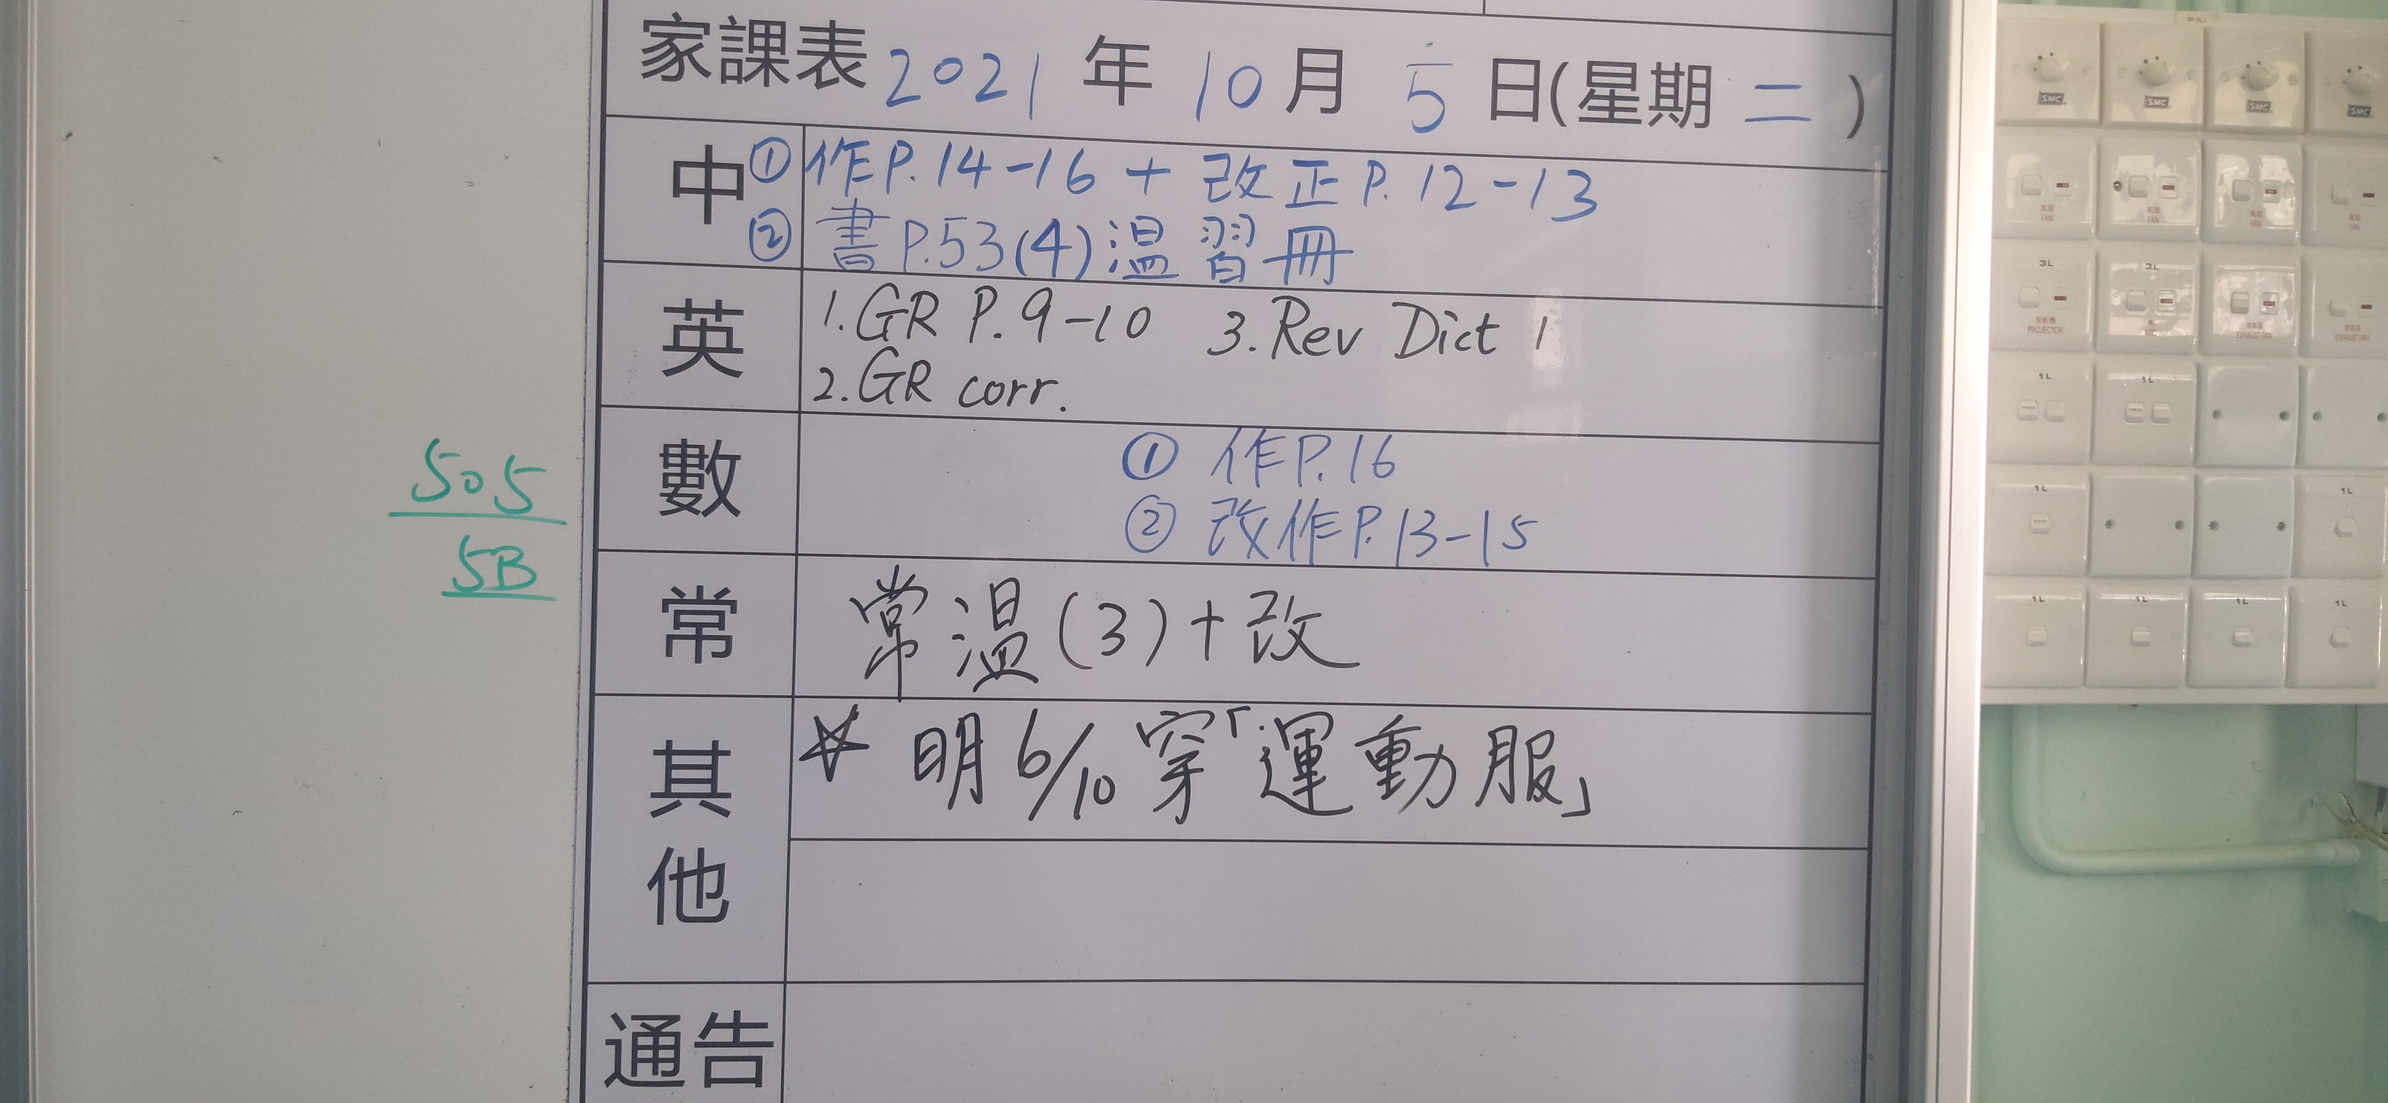 家課表 2021 年 10 月 5 日(星期 二 )
中 ① 作P.14-16 + 改正P.12-13
② 書P.53(4)溫習冊
英 1.GR P.9-10 3.Rev Dict 1
2.GR corr.
數 ① 作P.16
② 改作P.13-15
505
5B
常 常溫(3)+改
其他 ☆ 明6/10穿「運動服」
通告
SMC SMC SMC SMC
FAN FAN FAN FAN
3L 3L
PROJECTOR EXHAUST FAN EXHAUST FAN
1L 1L
1L 1L
1L 1L 1L 1L